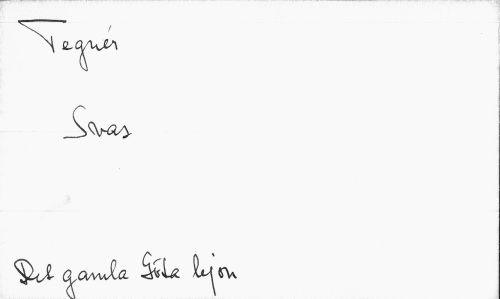 Tegnér
Svas
Det gamla Göta lejon